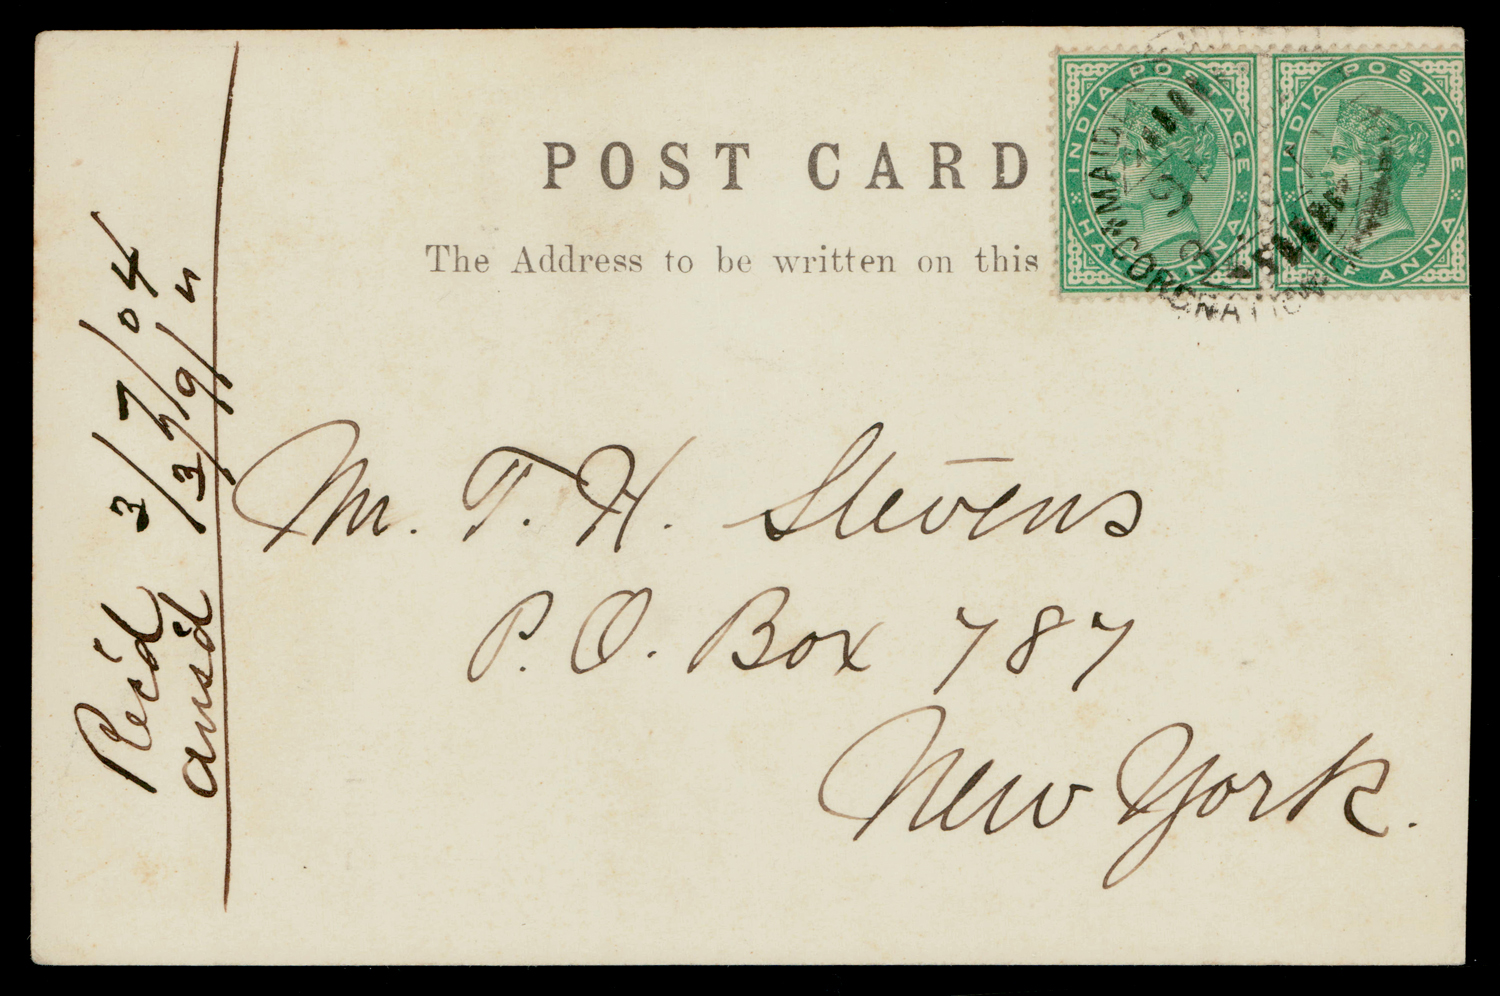 POST CARD
The Address to be written on this
INDIA POSTAGE
HALF ANNA
INDIA POSTAGE
HALF ANNA
CORONATION
Mr. T. H. Stevens
P. O. Box 787
New York.
Rec'd 3/7/04
ans'd